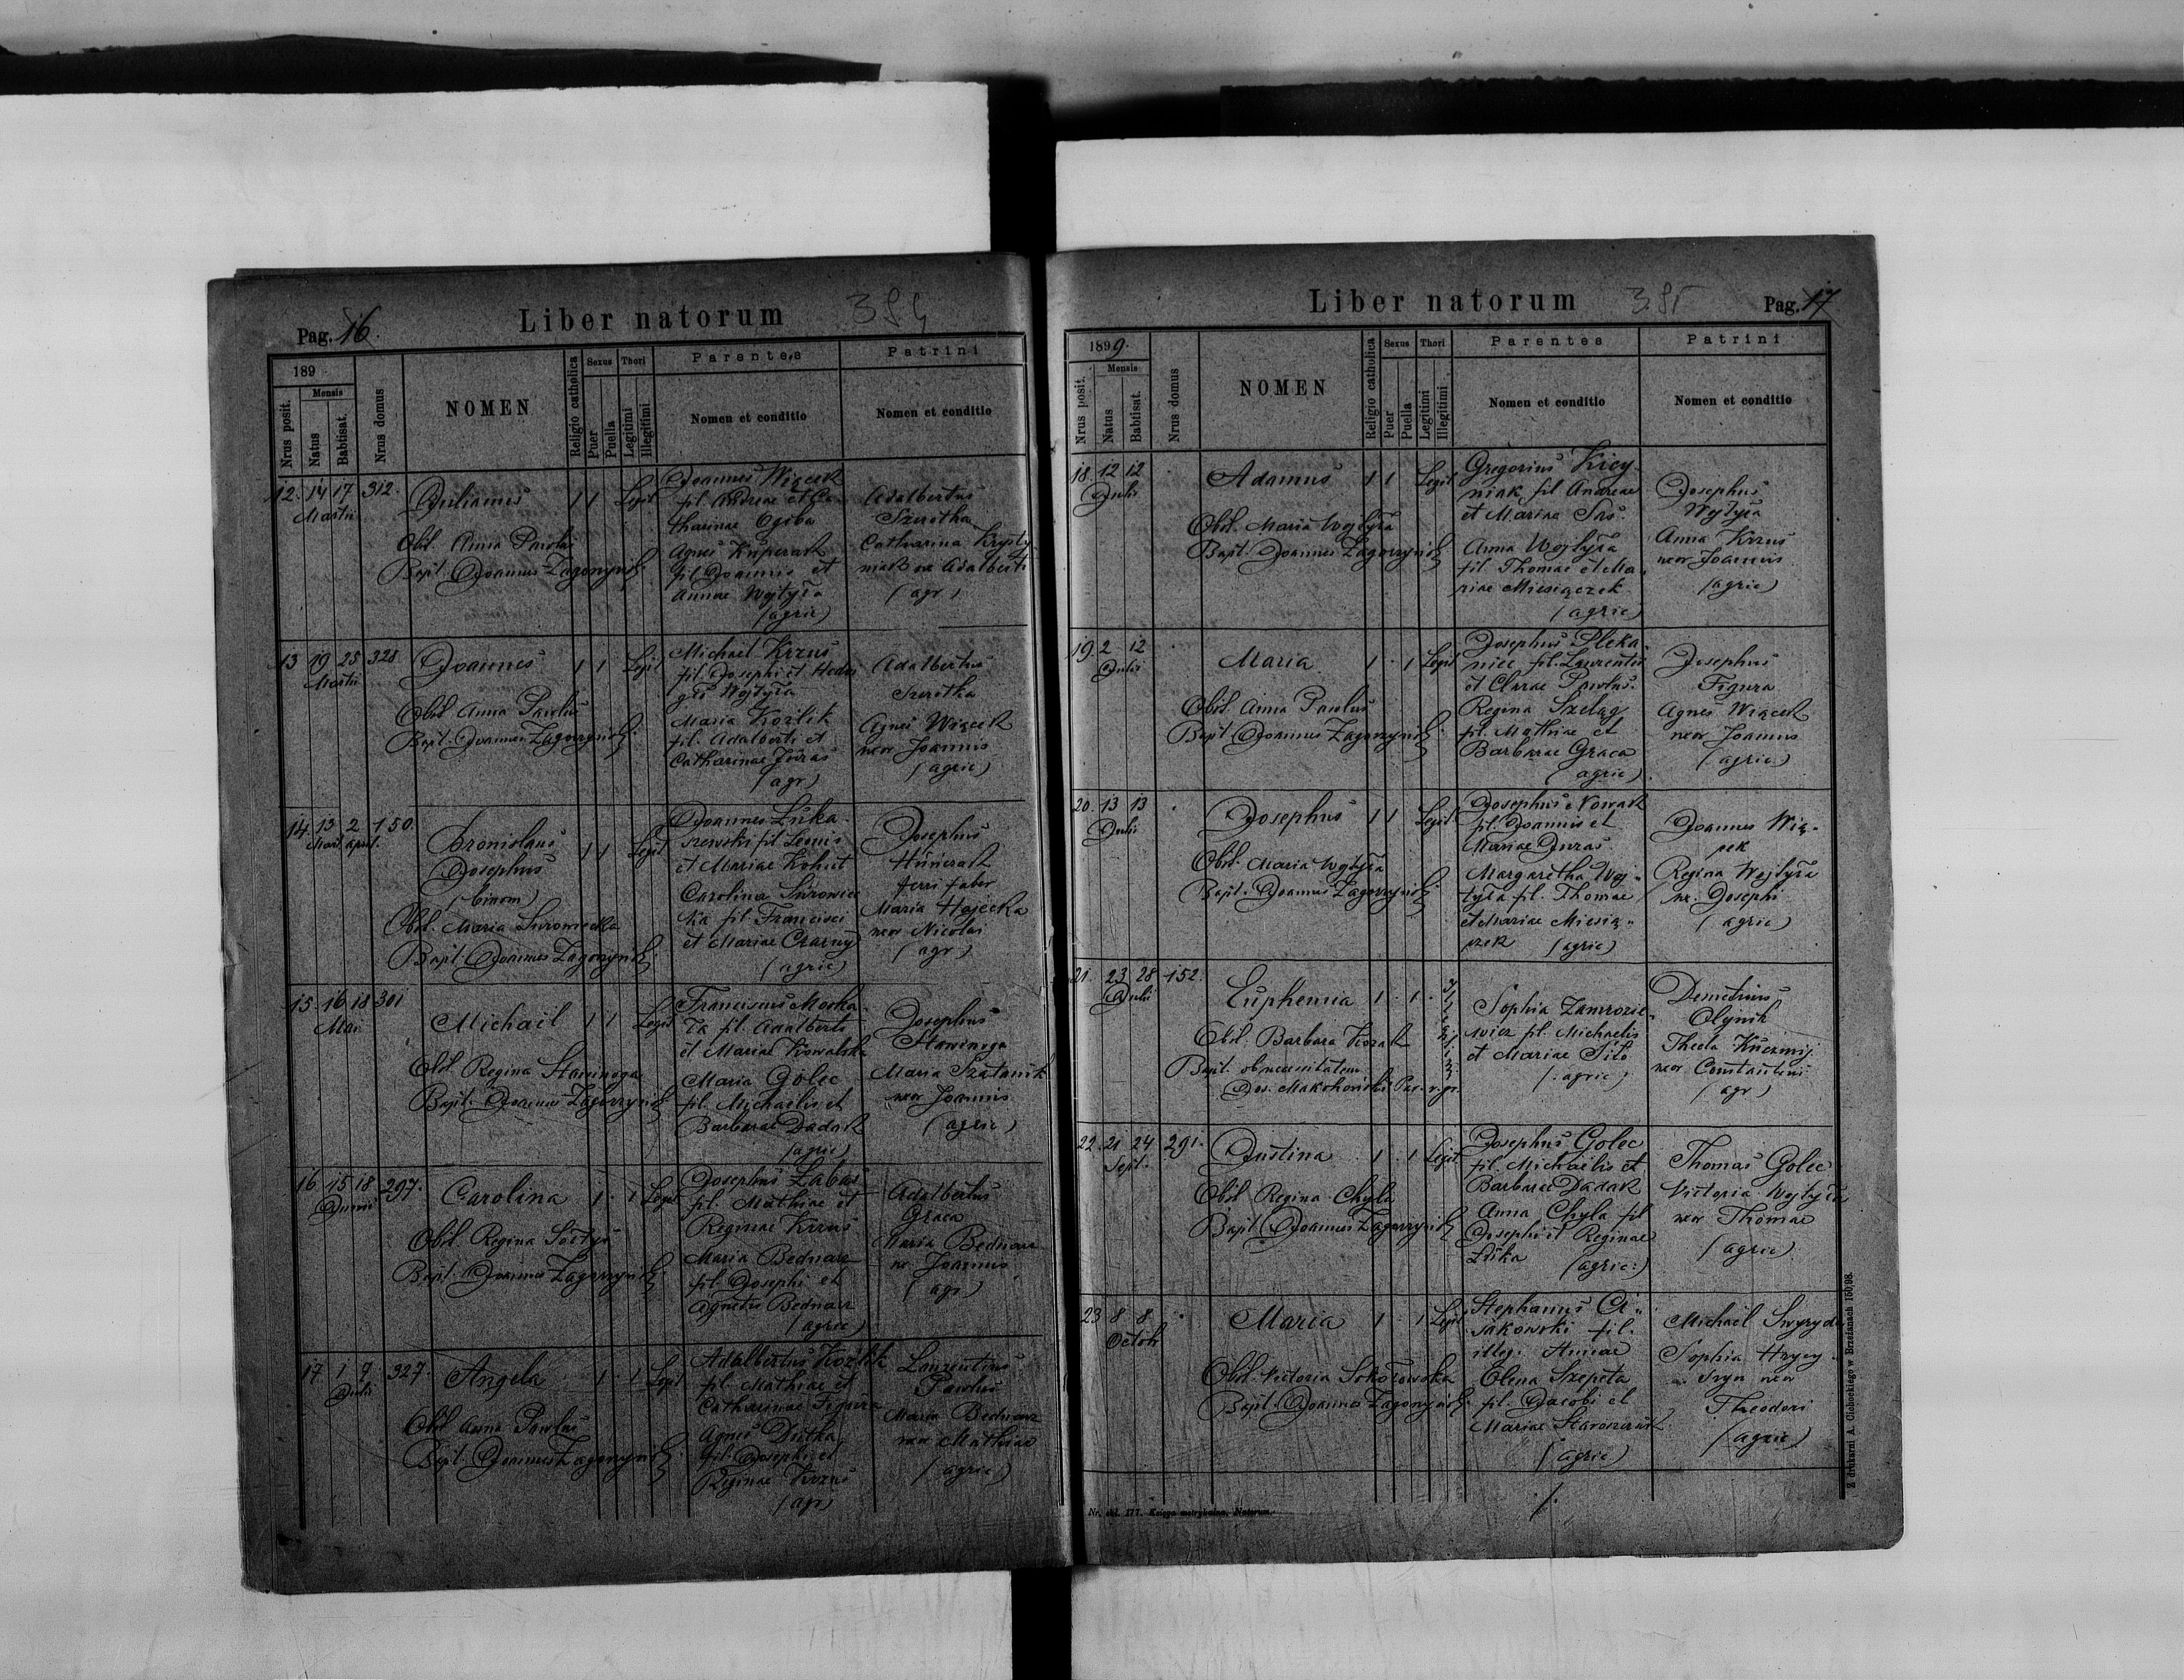 Pag. 16.
Liber natorum
384
189
Nrus posit.
Mensis
Natus
Babtisat.
Nrus domus
NOMEN
Religio catholica
Sexus
Puer
Puella
Thori
Legitimi
Illegitimi
Parentes
Nomen et conditio
Patrini
Nomen et conditio
12. 14 17 312.
Martii
Julianus 1 1 Legit
Obst. Anna Pawluś
Bapt. Joannes Zagorzynski
Joannes Wiącek
fil. Andreae et Ca-
tharinae Ogiba
Agnes Kuperak
fil. Joannis et
Annae Wojtyła
(agric)
Adalbertus
Szerotka
Catharina Krysty-
niak ux Adalberti
(agr)
13 19 25 328
Martii
Joannes 1 1 Legit
Obst Anna Pawluś
Bapt. Joannes Zagorzynski
Michael Krzuś
fil. Josephi et Hedvi
gis Wojtyła
Maria Kozlik
fil. Adalberti et
Catharinae Juras
(agr)
Adalbertus
Szerotka
Agnes Wiącek
uxor Joannis
(agric)
14. 13 2 150.
Mart. April.
Bronislaus
Josephus
(binom)
1 1 Legit
Obst. Maria Surowiecka
Bapt. Joannes Zagorzynski
Joannes Łuka-
szewski fil Leonis
et Mariae Kohut
Carolina Surowiec
ka fil. Francisci
et Mariae Czarny
(agric)
Josephus
ferri faber
Maria Hajecka
uxor Nicolai
(agr)
15. 16 18 301
Maii
Michael 1 1 Legit
Obst Regina Stawinoga
Bapt. Joannes Zagorzynski
Franciscus Moska-
ła fil. Adalberti
et Mariae Kowalska
Maria Golec
fil. Michaelis et
Barbarae Dadak
(agric)
Josephus
Stawinoga
Maria Szatanik
uxor Joannis
(agric)
16 15 18 297.
Junii
Carolina 1 1 Legit
Obst. Regina Sołtys
Bapt. Joannes Zagorzynski
Josephus Łabas
fil. Mathiae et
Reginae Krzus
Maria Bednarz
fil. Josephi et
Agnetis Bednarz
(agric)
Adalbertus
Graca
Maria Bednarz
ux. Joannis
(agr)
17 1 9 327.
Julii
Angela 1 1 Legit
Obst Anna Pawluś
Bapt. Joannes Zagorzynski
Adalbertus Kozlik
fil. Mathiae et
Catharinae Figura
Agnes Dutka
fil. Josephi et
Reginae Krzus
(agr)
Laurentius
Pawluś
Maria Bednarz
uxor Mathiae
(agric)
Liber natorum
385
Pag. 17
1899.
Nrus posit.
Mensis
Natus
Babtisat.
Nrus domus
NOMEN
Religio catholica
Sexus
Puer
Puella
Thori
Legitimi
Illegitimi
Parentes
Nomen et conditio
Patrini
Nomen et conditio
18. 12 12
Julii
Adamus 1 1 Legit
Obst. Maria Wojtyła
Bapt. Joannes Zagorzynski
Gregorius Kicy-
niak fil Andreae
et Mariae Sas.
Anna Wojtyła
fil Thomae et Ma-
riae Miesiączek
(agric)
Josephus
Wojtyła
Anna Krzus
uxor Joannis
(agric)
19 2 12
Julii
Maria 1 1 Legit
Obst. Anna Pawluś
Bapt Joannes Zagorzynski
Josephus Pleka-
niec fil. Laurentii
et Clarae Pawluś.
Regina Szeląg
fil. Mathiae et
Barbarae Graca
(agric)
Josephus
Figura
Agnes Wiącek
uxor Joannis
(agric)
20. 13 13
Julii
Josephus 1 1 Legit
Obst. Maria Wojtyła
Bapt. Joannes Zagorzynski
Josephus Nowak
fil. Joannis et
Mariae Juras
Margaretha Woj-
tyła fil. Thomae
et Mariae Miesią-
czek (agric)
Joannes Wią-
cek
Regina Wojtyła
ux. Josephi
(agric)
21. 23 28 152.
Julii
Euphemia 1 1
Illegitimi
Obst. Barbara Kozak
Bapt. ob necessitatem
Jos. Makohoński Par. r. gr.
Sophia Zamrozie-
wicz fil. Michaelis
et Mariae Piło
(agric)
Demetrius
Olynik
Thecla Kuczmij
uxor Constantini
(agr)
22. 21 24 291.
Sept.
Justina 1 1 Legit
Obst. Regina Chyla
Bapt. Joannes Zagorzynski
Josephus Golec
fil. Michaelis et
Barbarae Dadak
Anna Chyla fil
Josephi et Reginae
Liska (agric:)
Thomas Golec
Victoria Wojtyła
uxor Thomae
(agric)
23 8 8
Octob
Maria 1 1 Legit
Obst. Victoria Sokołowska
Bapt. Joannes Zagorzynski
Stephanus Ci-
sakowski fil.
illeg. Annae
Elena Szepeta
fil. Jacobi et
Mariae
(agric)
Michael Swyryda
Sophia Hrycy-
szyn uxor
Theodori
(agric)
Nr. skł. 177. Księga metrykalna, Natorum.
Z drukarni A. Glebockiego w Brzeżanach 150/98.